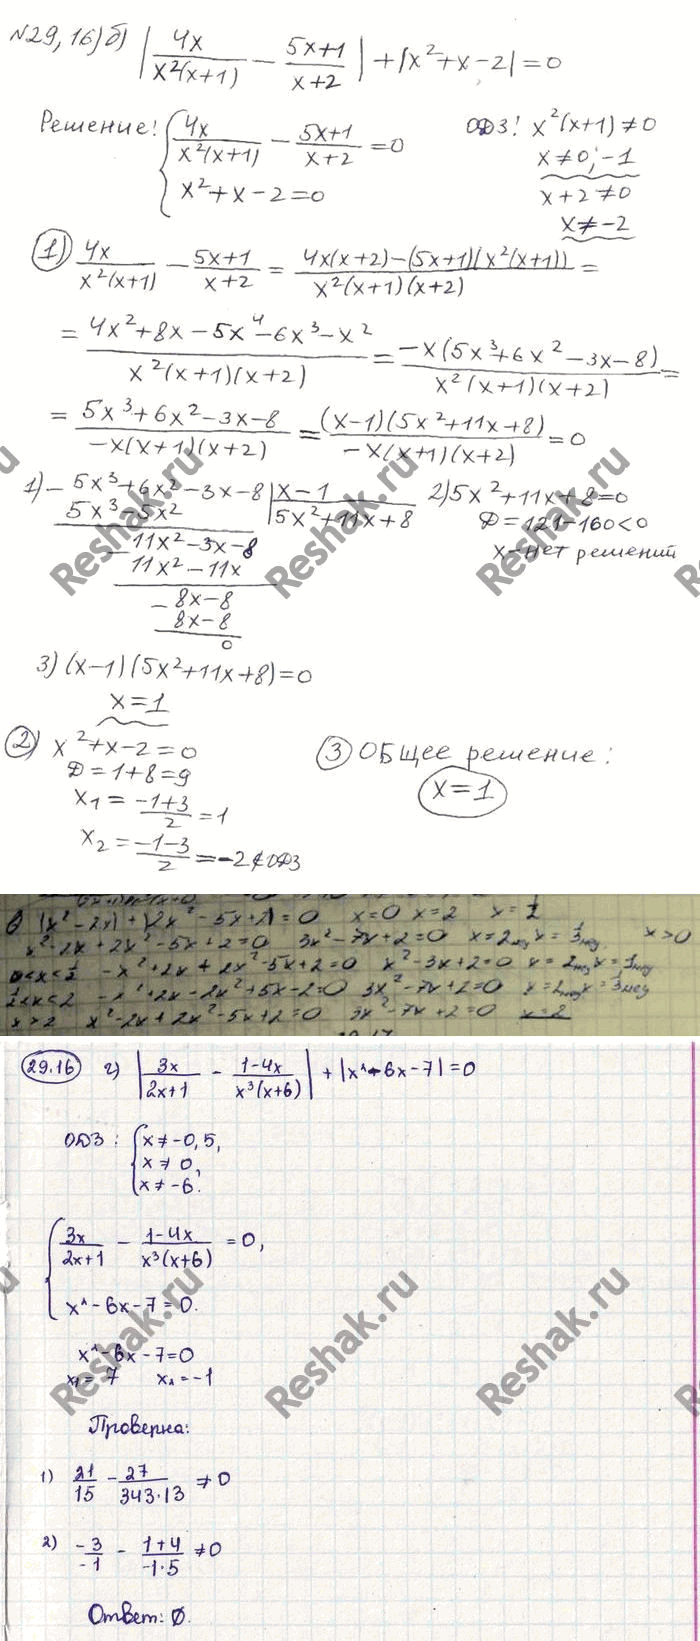 №29,16)б) |4x/(x²(x+1)) - (5x+1)/(x+2)| + |x²+x-2| = 0
Решение! {4x/(x²(x+1)) - (5x+1)/(x+2) = 0
x²+x-2=0
ОДЗ! x²(x+1)≠0
x≠0;-1
x+2≠0
x≠-2
1) 4x/(x²(x+1)) - (5x+1)/(x+2) = (4x(x+2)-(5x+1)(x²(x+1)))/(x²(x+1)(x+2)) =
= (4x²+8x-5x⁴-6x³-x²)/(x²(x+1)(x+2)) = (-x(5x³+6x²-3x-8))/(x²(x+1)(x+2)) =
= (5x³+6x²-3x-8)/(-x(x+1)(x+2)) = ((x-1)(5x²+11x+8))/(-x(x+1)(x+2)) = 0
1) - 5x³+6x²-3x-8 | x-1
5x³-5x² | 5x²+11x+8
- 11x²-3x-8
11x²-11x
- 8x-8
8x-8
0
2) 5x²+11x+8=0
Д=121-160<0
x-нет решений
3) (x-1)(5x²+11x+8)=0
x=1
2) x²+x-2=0
Д=1+8=9
x₁=(-1+3)/2=1
x₂=(-1-3)/2=-2∉ОДЗ
3) Общее решение:
x=1
в |x²-2x|+|2x²-5x+2|=0 x=0 x=2 x=1/2
x²-2x+2x²-5x+2=0 3x²-7x+2=0 x=2 x=1/3 x>0
-x²+2x+2x²-5x+2=0 x²-3x+2=0 x=2 x=1
1/2<x<2 -x²+2x-2x²+5x-2=0 3x²-7x+2=0 x=2 x=1/3
x>2 x²-2x+2x²-5x+2=0 3x²-7x+2=0 x=2
29.16 г) |3x/(2x+1) - (1-4x)/(x³(x+6))| + |x²-6x-7|=0
ОДЗ: {x≠-0,5,
x≠0,
x≠-6.
{3x/(2x+1) - (1-4x)/(x³(x+6)) =0,
x²-6x-7=0.
x²-6x-7=0
x₁=7 x₂=-1
Проверка:
1) 21/15 - 27/(343·13) ≠0
2) -3/-1 - (1+4)/(-1·5) ≠0
Ответ: Ø.
Reshak.ru
Reshak.ru
Reshak.ru
Reshak.ru
Reshak.ru
Reshak.ru